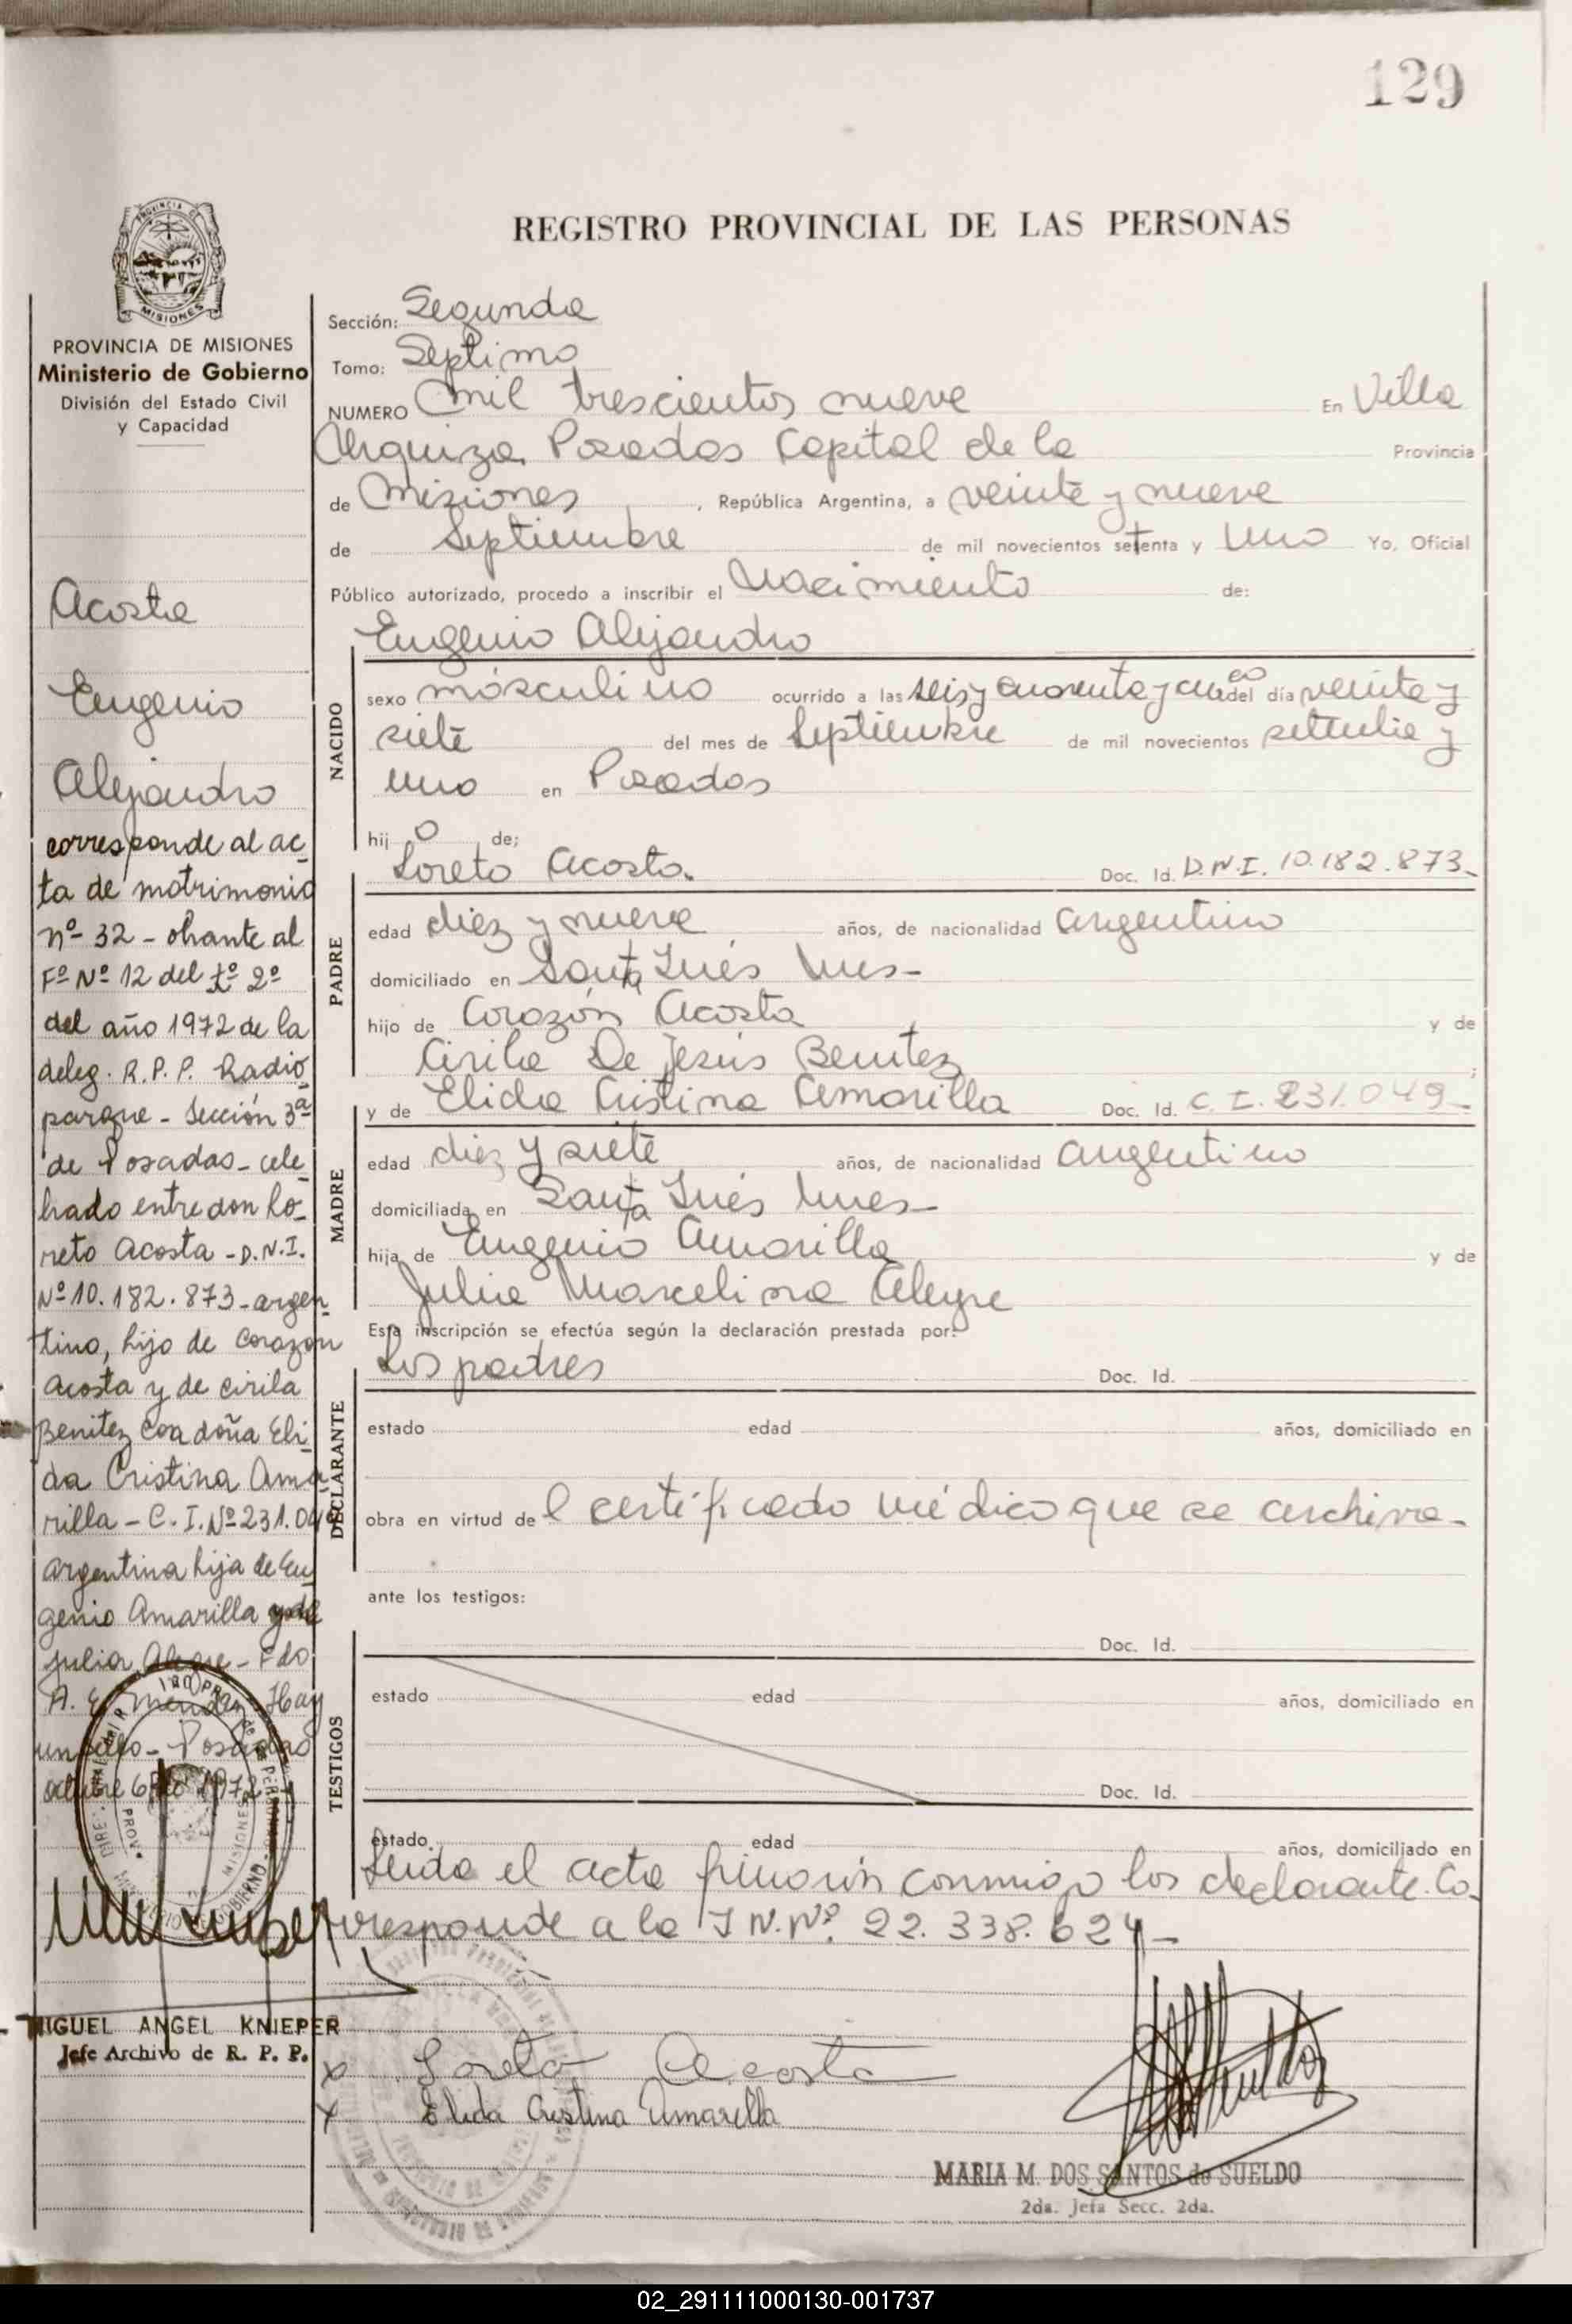 129
REGISTRO PROVINCIAL DE LAS PERSONAS
PROVINCIA DE MISIONES
Ministerio de Gobierno
División del Estado Civil
y Capacidad
Acosta
Eugenio
Alejandro
corresponde al ac-
ta de matrimonio
nº 32 - obrante al
Fº Nº 12 del tº 2º
del año 1972 de la
deleg. R.P.P. Radio
parque - Sección 3ª
de Posadas - cele
brado entre don Lo-
reto Acosta - D.N.I.
Nº 10.182.873 - argen-
tino, hijo de Corazon
Acosta y de Cirila
Benitez con doña Eli-
da Cristina Ama-
rilla - C.I. Nº 231.049
argentina hija de Eu-
genio Amarilla y de
Julia Alegre - Fdo
A. E. Mendez Hay
un sello - Posadas
octubre 6 de 1972
MIGUEL ANGEL KNIEPER
Jefe Archivo de R. P. P.
Sección: Segunda
Tomo: Septimo
NUMERO Mil trescientos nueve En Villa
Urquiza Posadas Capital de la Provincia
de Misiones, República Argentina, a veinte y nueve
de Septiembre de mil novecientos setenta y Uno Yo, Oficial
Público autorizado, procedo a inscribir el Nacimiento de:
Eugenio Alejandro
NACIDO
sexo másculino ocurrido a las seis y cuarenta y cinco del día veinte y
siete del mes de Septiembre de mil novecientos setenta y
uno en Posadas
hij o de;
Loreto Acosta. Doc. Id. D.N.I. 10.182.873-
PADRE
edad diez y nueve años, de nacionalidad argentino
domiciliado en Santa Inés Mnes-
hijo de Corazón Acosta y de
Cirila De Jesús Benitez ;
y de Elida Cristina Amarilla Doc. Id. C.I. 231.049-
MADRE
edad diez y siete años, de nacionalidad argentino
domiciliada en Santa Inés Mnes-
hija de Eugenio Amarilla y de
Julia Marcelina Alegre
Esta inscripción se efectúa según la declaración prestada por:
Los padres Doc. Id.
DECLARANTE
estado edad años, domiciliado en
obra en virtud de l certificado médico que se archiva-
ante los testigos:
Doc. Id.
TESTIGOS
estado edad años, domiciliado en
Doc. Id.
estado edad años, domiciliado en
Leida el acta firmarón conmigo los declarante. Co-
rresponde a la I N. Nº. 22.338.624-
x Loreto Acosta
x Elida Cristina Amarilla
MARIA M. DOS SANTOS de SUELDO
2da. Jefa Secc. 2da.
02_291111000130-001737